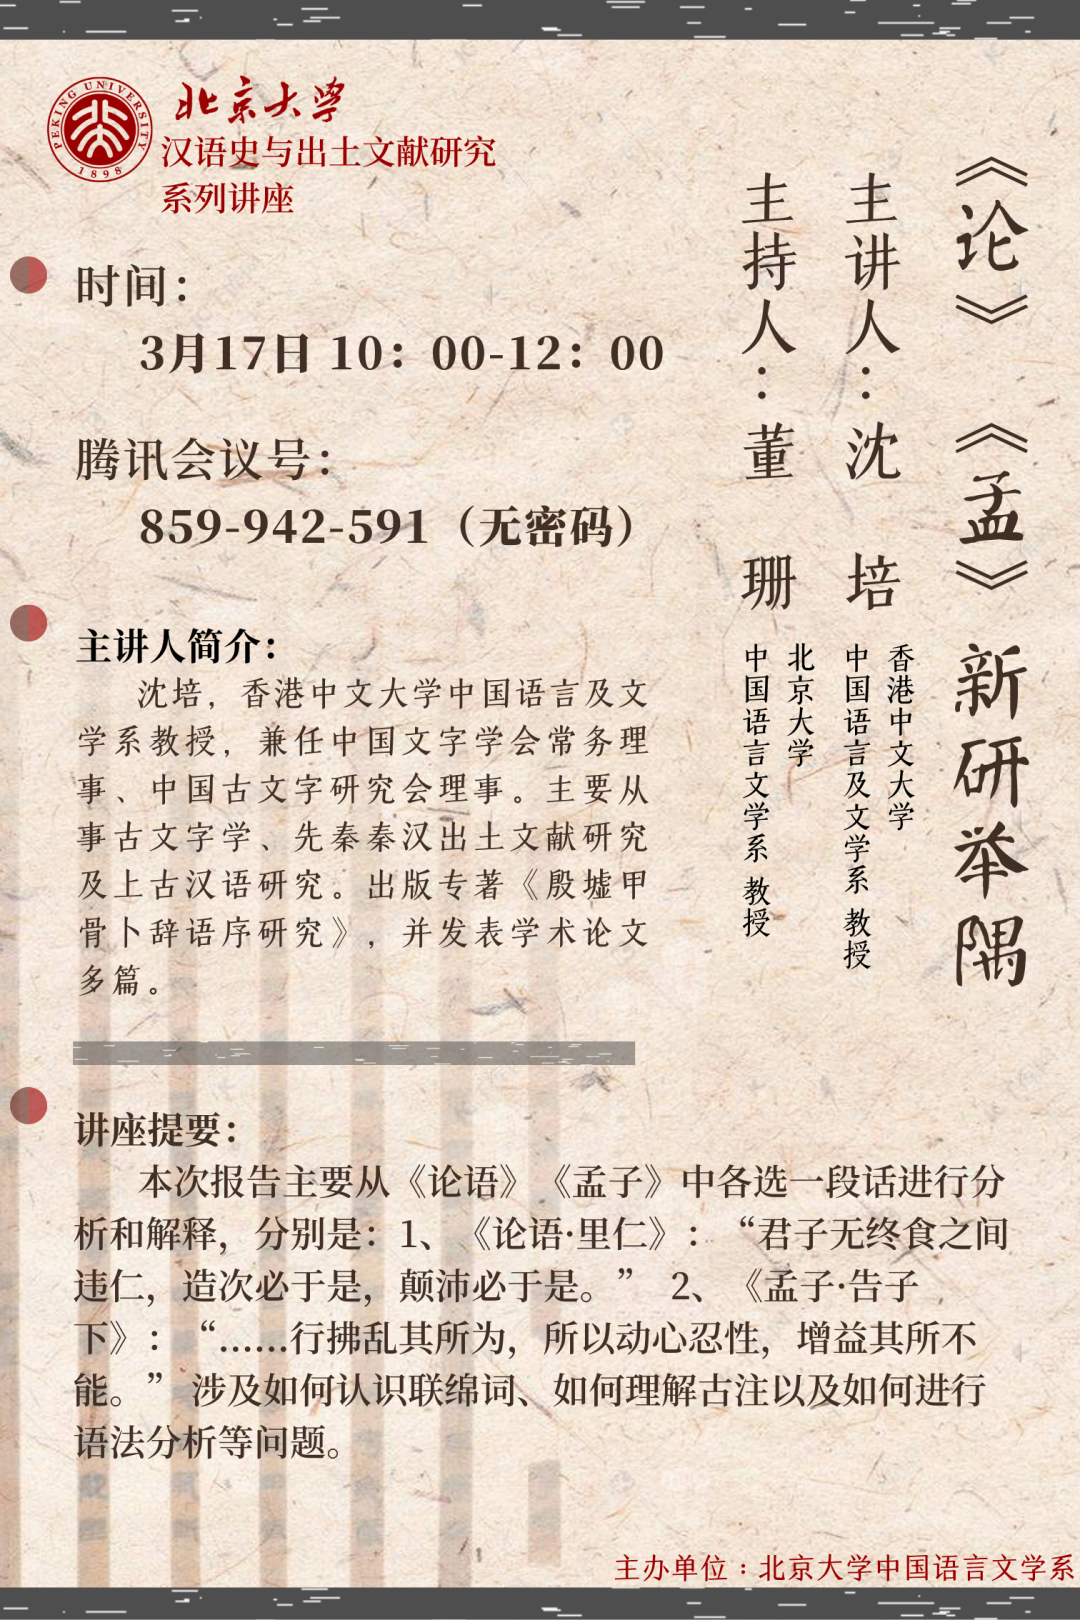 PEKING UNIVERSITY
1898
北京大学
汉语史与出土文献研究
系列讲座
《论》《孟》新研举隅
主讲人：沈 培
香港中文大学
中国语言及文学系 教授
主持人：董 珊
北京大学
中国语言文学系 教授
时间：
3月17日 10：00-12：00
腾讯会议号：
859-942-591（无密码）
主讲人简介：
沈培，香港中文大学中国语言及文
学系教授，兼任中国文字学会常务理
事、中国古文字研究会理事。主要从
事古文字学、先秦秦汉出土文献研究
及上古汉语研究。出版专著《殷墟甲
骨卜辞语序研究》，并发表学术论文
多篇。
讲座提要：
本次报告主要从《论语》《孟子》中各选一段话进行分
析和解释，分别是：1、《论语·里仁》：“君子无终食之间
违仁，造次必于是，颠沛必于是。” 2、《孟子·告子
下》：“……行拂乱其所为，所以动心忍性，增益其所不
能。” 涉及如何认识联绵词、如何理解古注以及如何进行
语法分析等问题。
主办单位：北京大学中国语言文学系